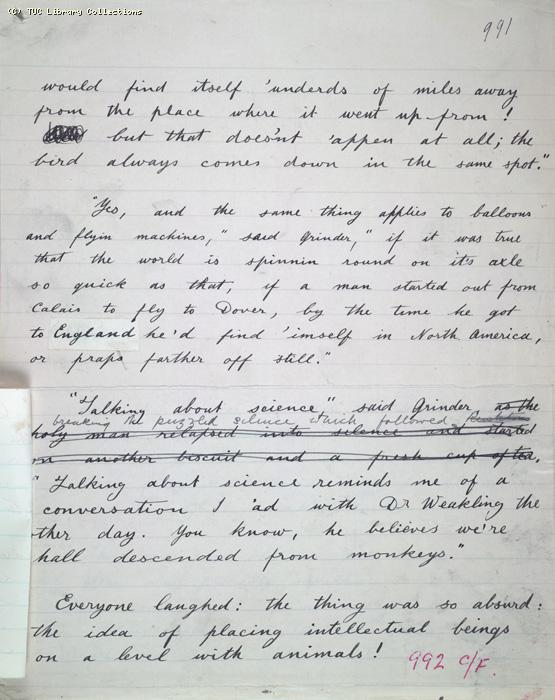 (C) TUC Library Collections
991
would find itself 'underds of miles away
from the place where it went up from!
but that does'nt 'appen at all; the
bird always comes down in the same spot."
"Yes, and the same thing applies to balloons
and flyin machines," said Grinder, "if it was true
that the world is spinnin round on it's axle
so quick as that, if a man started out from
Calais to fly to Dover, by the time he got
to England he'd find 'imself in North America,
or praps farther off still."
"Talking about science," said Grinder as the
breaking the puzzled silence which followed
holy man relapsed into silence and started
on another biscuit and a fresh cup of tea.
"Talking about science reminds me of a
conversation I 'ad with Dr Weakling the
ther day. You know, he believes we're
hall descended from monkeys."
Everyone laughed: the thing was so absurd:
the idea of placing intellectual beings
on a level with animals!
992 C/F.